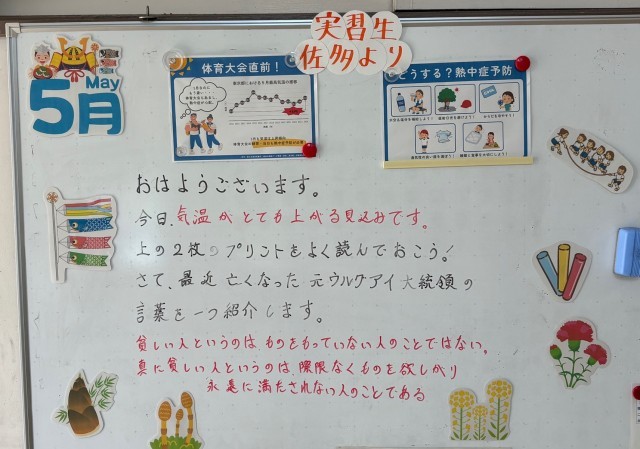 実習生
佐多より
May
5月
体育大会直前！
どうする？熱中症予防
おはようございます。
今日、気温がとても上がる見込みです。
上の２枚のプリントをよく読んでおこう！
さて、最近亡くなった元ウルグアイ大統領の
言葉を一つ紹介します。
貧しい人というのは、ものをもっていない人のことではない。
真に貧しい人というのは、際限なくものを欲しがり
永遠に満たされない人のことである